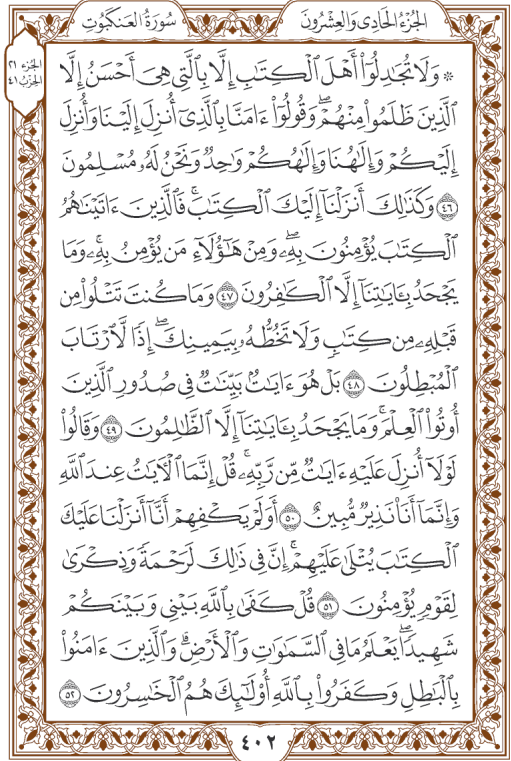 الجُزْءُ الحَادِى وَالعِشْرُونَ
سُورَةُ العَنكَبُوتِ
الجزء ٢١
الحزب ٤١
۞ وَلَا تُجَٰدِلُوٓا۟ أَهْلَ ٱلْكِتَٰبِ إِلَّا بِٱلَّتِى هِىَ أَحْسَنُ إِلَّا
ٱلَّذِينَ ظَلَمُوا۟ مِنْهُمْۖ وَقُولُوٓا۟ ءَامَنَّا بِٱلَّذِىٓ أُنزِلَ إِلَيْنَا وَأُنزِلَ
إِلَيْكُمْ وَإِلَٰهُنَا وَإِلَٰهُكُمْ وَٰحِدٌ وَنَحْنُ لَهُۥ مُسْلِمُونَ
٤٦ وَكَذَٰلِكَ أَنزَلْنَآ إِلَيْكَ ٱلْكِتَٰبَۚ فَٱلَّذِينَ ءَاتَيْنَٰهُمُ
ٱلْكِتَٰبَ يُؤْمِنُونَ بِهِۦۖ وَمِنْ هَٰٓؤُلَآءِ مَن يُؤْمِنُ بِهِۦۚ وَمَا
يَجْحَدُ بِـَٔايَٰتِنَآ إِلَّا ٱلْكَٰفِرُونَ ٤٧ وَمَا كُنتَ تَتْلُوا۟ مِن
قَبْلِهِۦ مِن كِتَٰبٍ وَلَا تَخُطُّهُۥ بِيَمِينِكَۖ إِذًا لَّٱرْتَابَ
ٱلْمُبْطِلُونَ ٤٨ بَلْ هُوَ ءَايَٰتٌۢ بَيِّنَٰتٌ فِى صُدُورِ ٱلَّذِينَ
أُوتُوا۟ ٱلْعِلْمَۚ وَمَا يَجْحَدُ بِـَٔايَٰتِنَآ إِلَّا ٱلظَّٰلِمُونَ ٤٩ وَقَالُوا۟
لَوْلَآ أُنزِلَ عَلَيْهِ ءَايَٰتٌ مِّن رَّبِّهِۦۚ قُلْ إِنَّمَا ٱلْـَٔايَٰتُ عِندَ ٱللَّهِ
وَإِنَّمَآ أَنَا۠ نَذِيرٌ مُّبِينٌ ٥٠ أَوَلَمْ يَكْفِهِمْ أَنَّآ أَنزَلْنَا عَلَيْكَ
ٱلْكِتَٰبَ يُتْلَىٰ عَلَيْهِمْۚ إِنَّ فِى ذَٰلِكَ لَرَحْمَةً وَذِكْرَىٰ
لِقَوْمٍ يُؤْمِنُونَ ٥١ قُلْ كَفَىٰ بِٱللَّهِ بَيْنِى وَبَيْنَكُمْ
شَهِيدًاۖ يَعْلَمُ مَا فِى ٱلسَّمَٰوَٰتِ وَٱلْأَرْضِۗ وَٱلَّذِينَ ءَامَنُوا۟
بِٱلْبَٰطِلِ وَكَفَرُوا۟ بِٱللَّهِ أُو۟لَٰٓئِكَ هُمُ ٱلْخَٰسِرُونَ ٥٢
٤٠٢